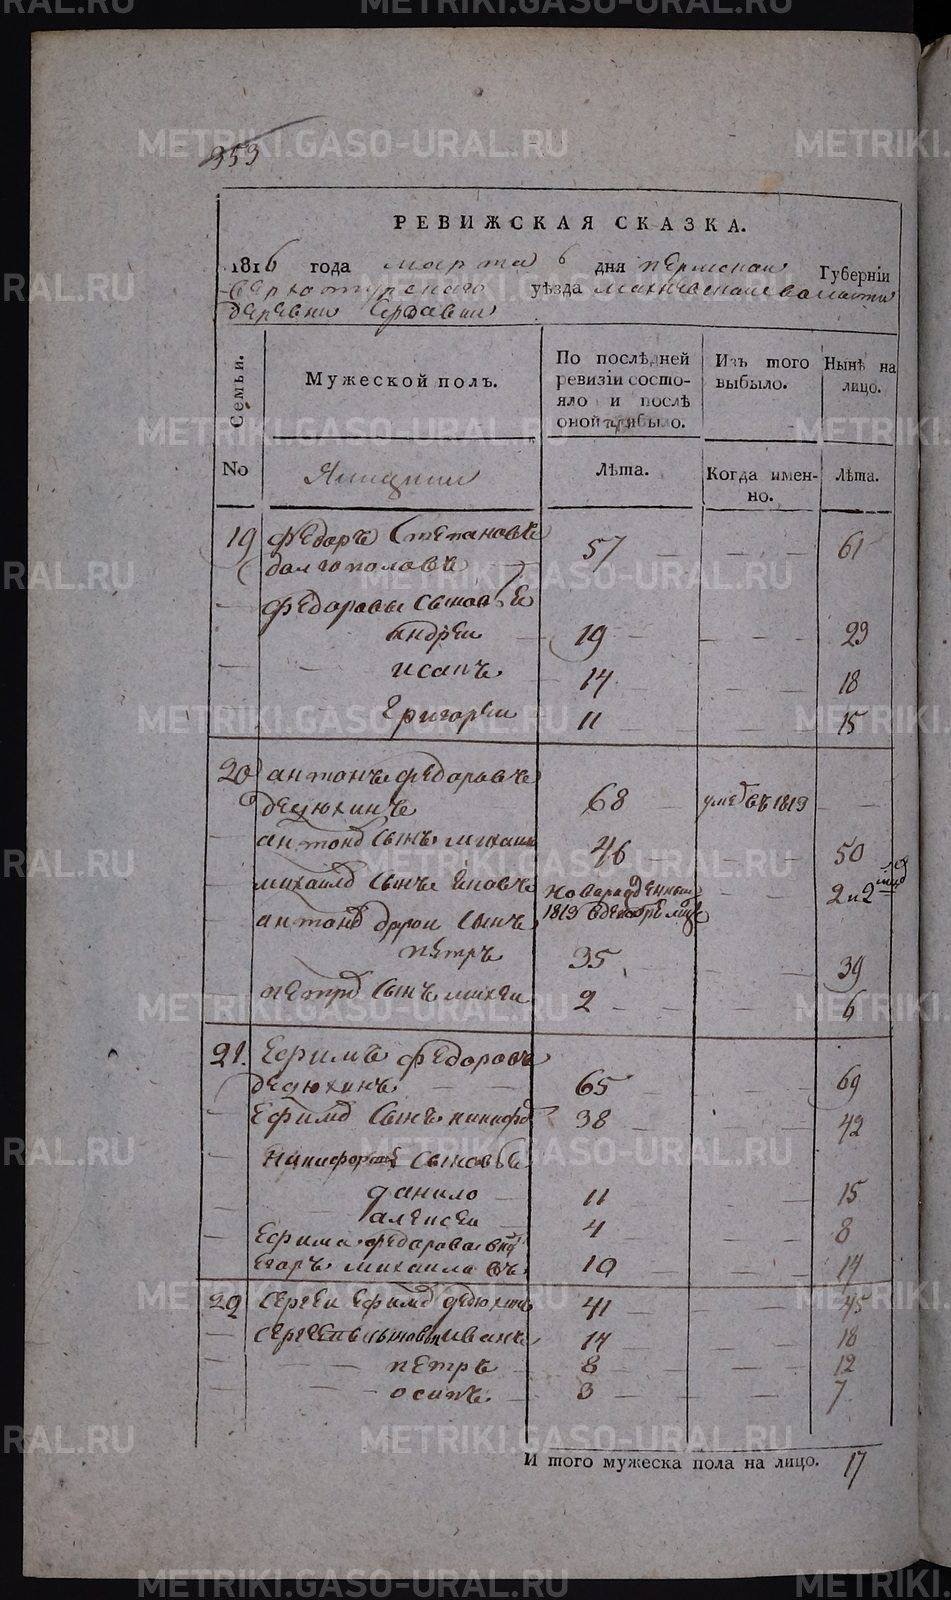 353
РЕВИЖСКАЯ СКАЗКА.
1816 года марта 6 дня пермской Губернїи
верхотурскаго уѣзда махневской волости
деревни
Семьи.
Мужеской полъ.
По послѣдней ревизїи состояло и послѣ оной прибыло.
Изъ того выбыло.
Нынѣ на лицо.
No
Ямщики
Лѣта.
Когда именно.
Лѣта.
19 Федоръ Степановъ
долгополовъ 57 61
Федоровы сыновье
андреи 19 23
исакъ 14 18
Григореи 11 15
20 антонъ федоровъ
дедюхинъ 68 умре въ 1813
антона сынъ михаило 46 50
михаила сынъ новорожденныи
1813 декабре 2 и 2
антона другои сынъ
петръ 35 39
петра сынъ михеи 2 6
21. Ефимъ федоровъ
дедюхинъ 65 69
Ефима сынъ никифоръ 38 42
Никифоровы сыновье
данило 11 15
алексеи 4 8
Ефима федорова внукъ
егоръ михаиловъ 10 14
22 Сергеи ефимовъ дедюхинъ 41 45
сергеевы сыновья иванъ 14 18
петръ 8 12
осипъ 3 7
И того мужеска пола на лицо. 17
METRIKI.GASO-URAL.RU